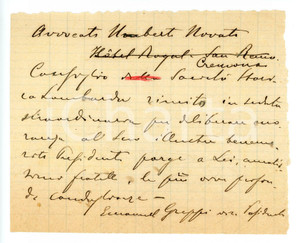 Avvocato Umberto Novati
Hôtel Royal - San Remo
Cremona
Consiglio della Società Stor.
Lombarda riunito in seduta
straordinaria per deliberare ono-
ranze al Suo illustre beneme-
rito Presidente porge a Lei, amatis-
simo fratello, le più vive profon-
de condoglianze -
Emanuele Greppi vice Presidente